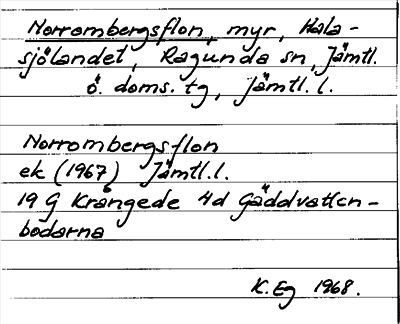 Norrombergsflon, myr, Kala-
sjölandet, Ragunda sn, Jämtl.
ö. doms. tg, Jämtl. l.
Norrombergsflon
ek (1967) Jämtl. l.
19 G Krångede 4d Gäddvattcn-
bodarna
K. Eg 1968.